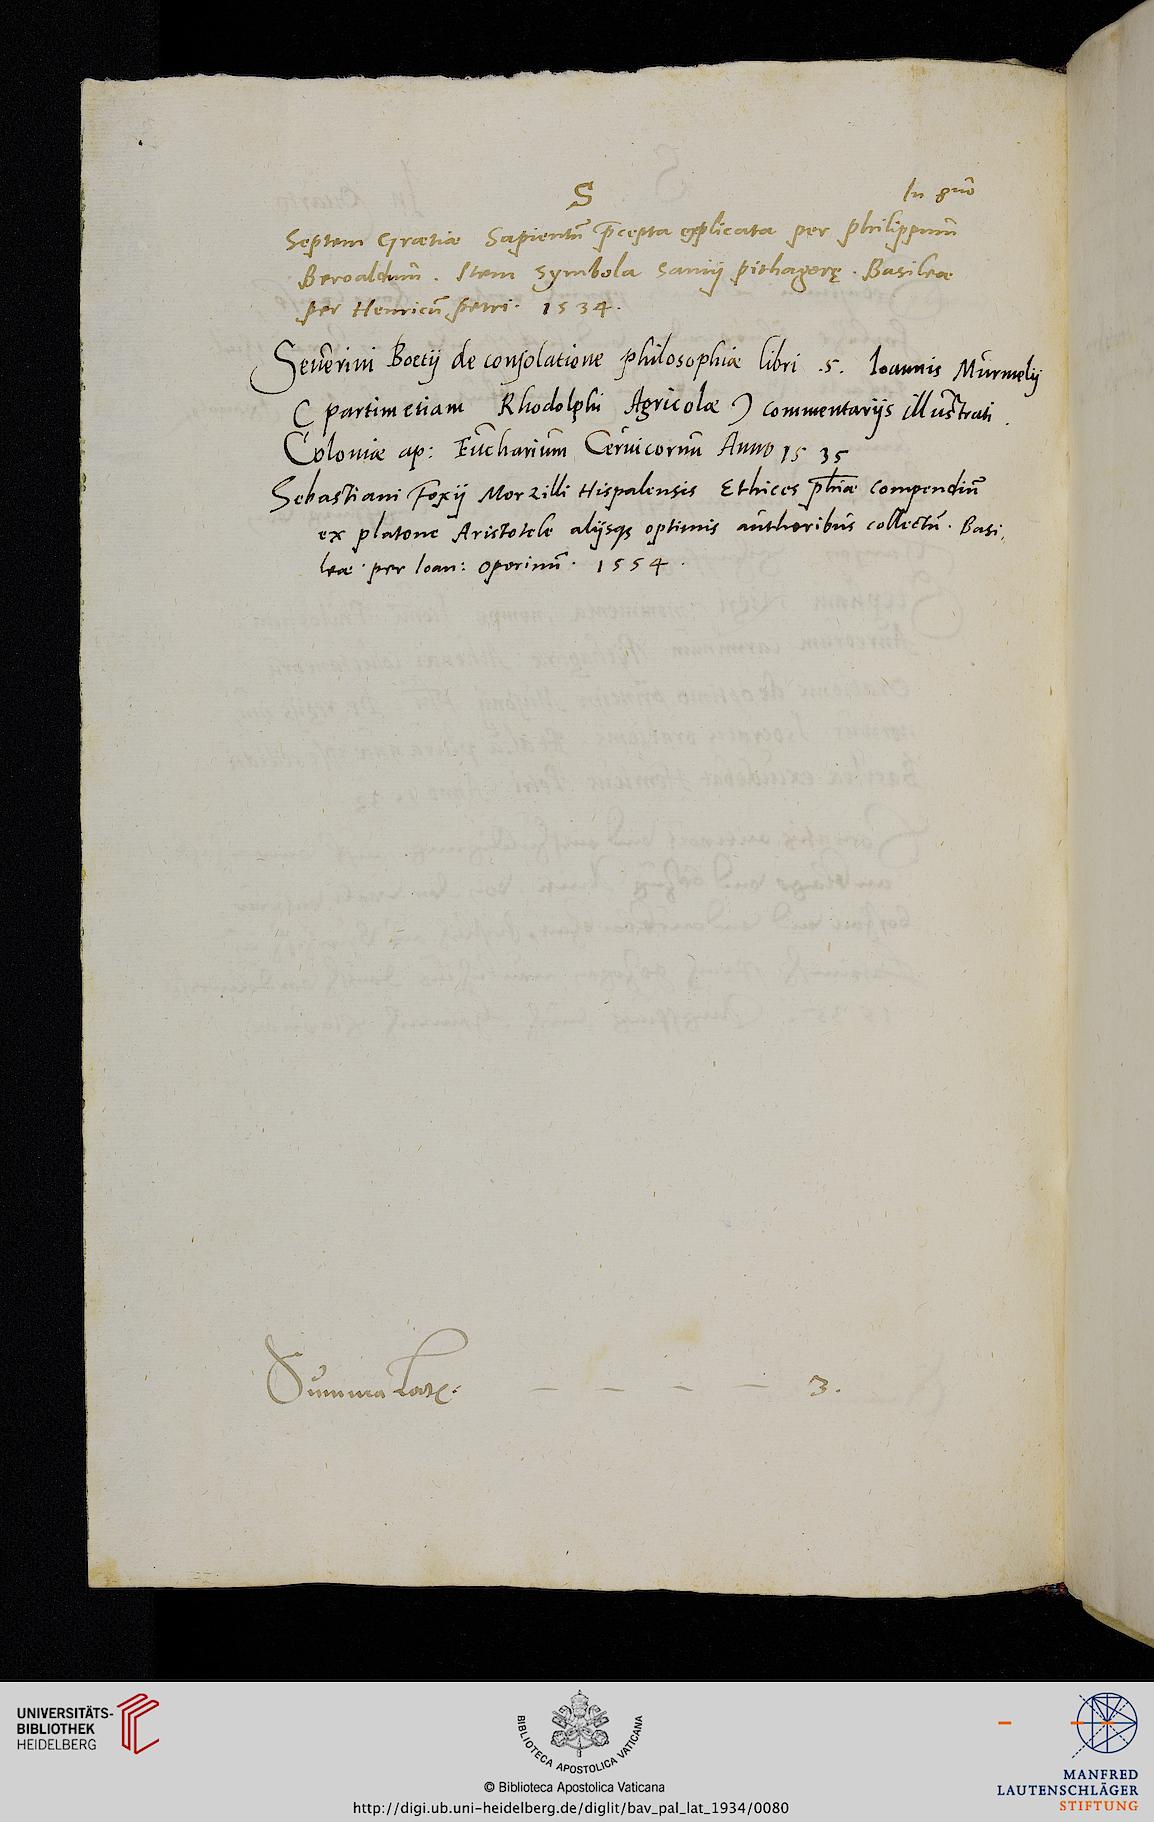 S
In 8uo
Septem Græciæ Sapientũ p̃cepta explicata per philippum
Beroaldum. Item Symbola Samij pithagorę. Basileæ
per Henricũ petri. 1534.
Seuerini Boetij de consolatione philosophiæ libri .5. Ioannis Murmelij
( partim etiam Rhodolphi Agricolæ ) commentarijs illustrati.
Coloniæ ap: Eucharium Ceruicornũ Anno 1535
Sebastiani Foxij Morzilli Hispalensis Ethices ph̃iæ compendiũ
ex platone Aristotele alijsq; optimis authoribus collectũ. Basi,,
leæ per Ioan: Operinũ. 1554.
Summa — — — — 3.
UNIVERSITÄTS-
BIBLIOTHEK
HEIDELBERG
BIBLIOTECA APOSTOLICA VATICANA
© Biblioteca Apostolica Vaticana
http://digi.ub.uni-heidelberg.de/diglit/bav_pal_lat_1934/0080
MANFRED
LAUTENSCHLÄGER
STIFTUNG